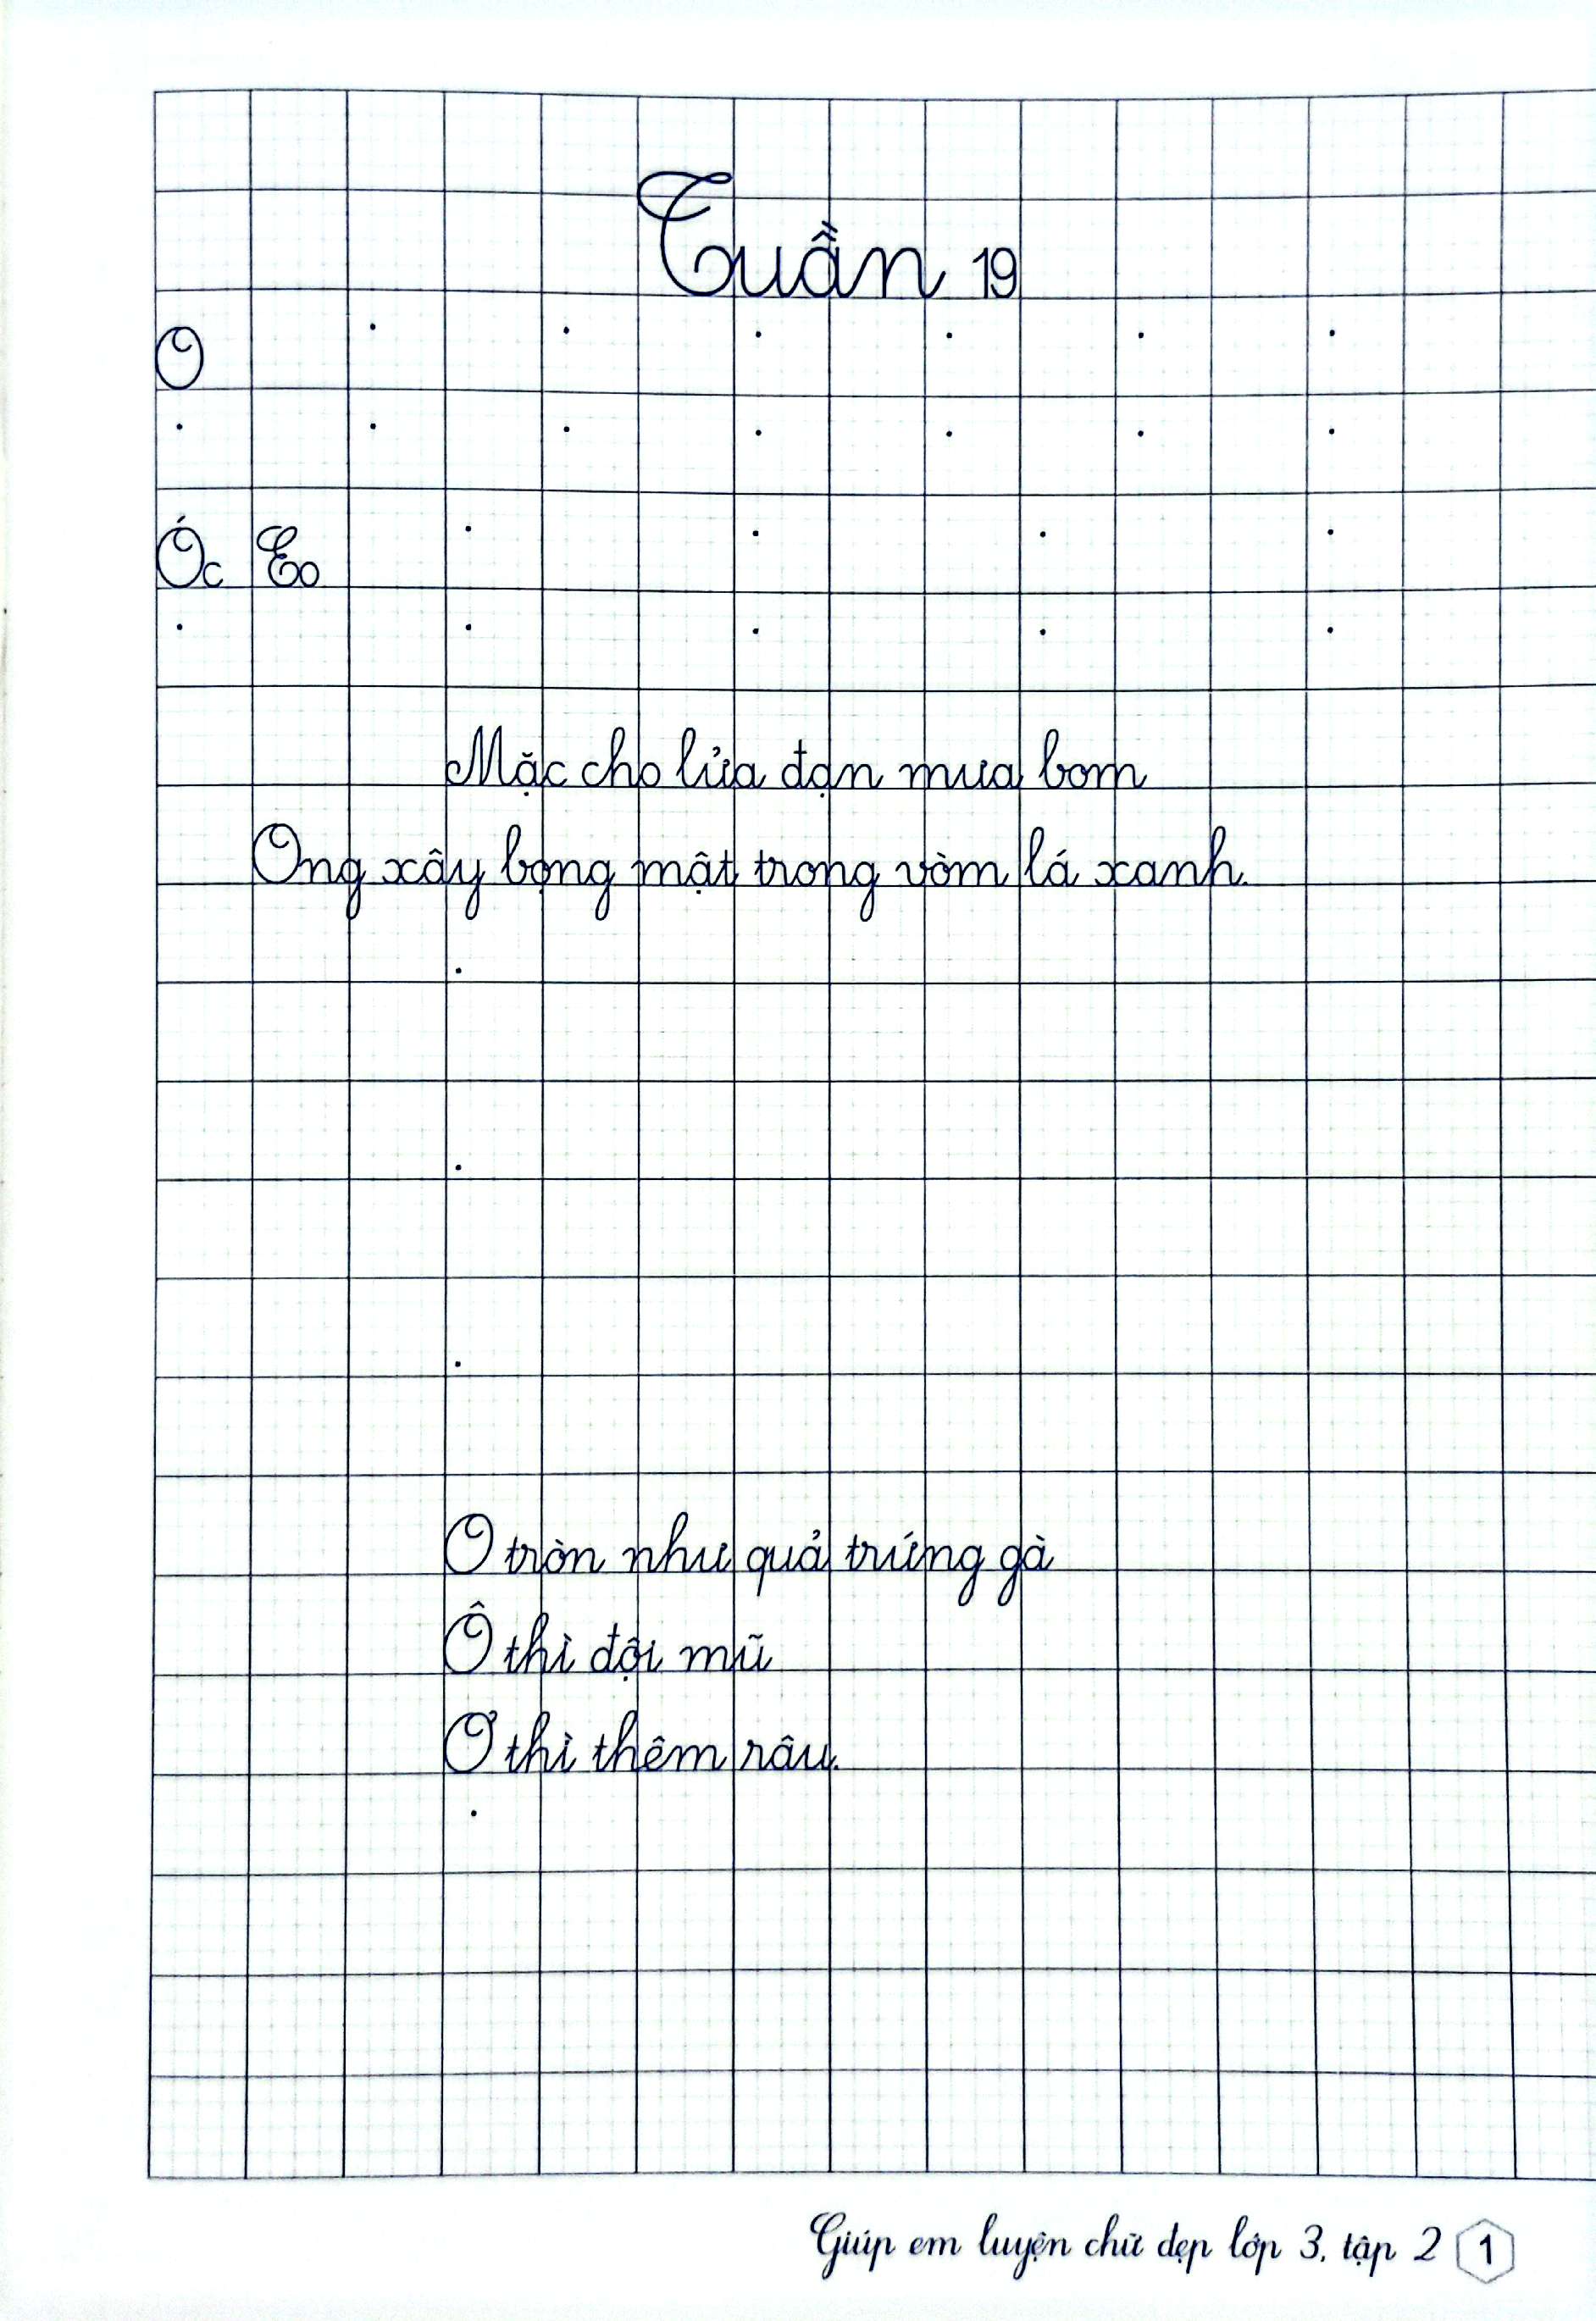 Tuần 19
O
Óc Eo
Mặc cho lửa đạn mưa bom
Ong xây bọng mật trong vòm lá xanh.
O tròn như quả trứng gà
Ô thì đội mũ
Ơ thì thêm râu.
Giúp em luyện chữ đẹp lớp 3, tập 2 1